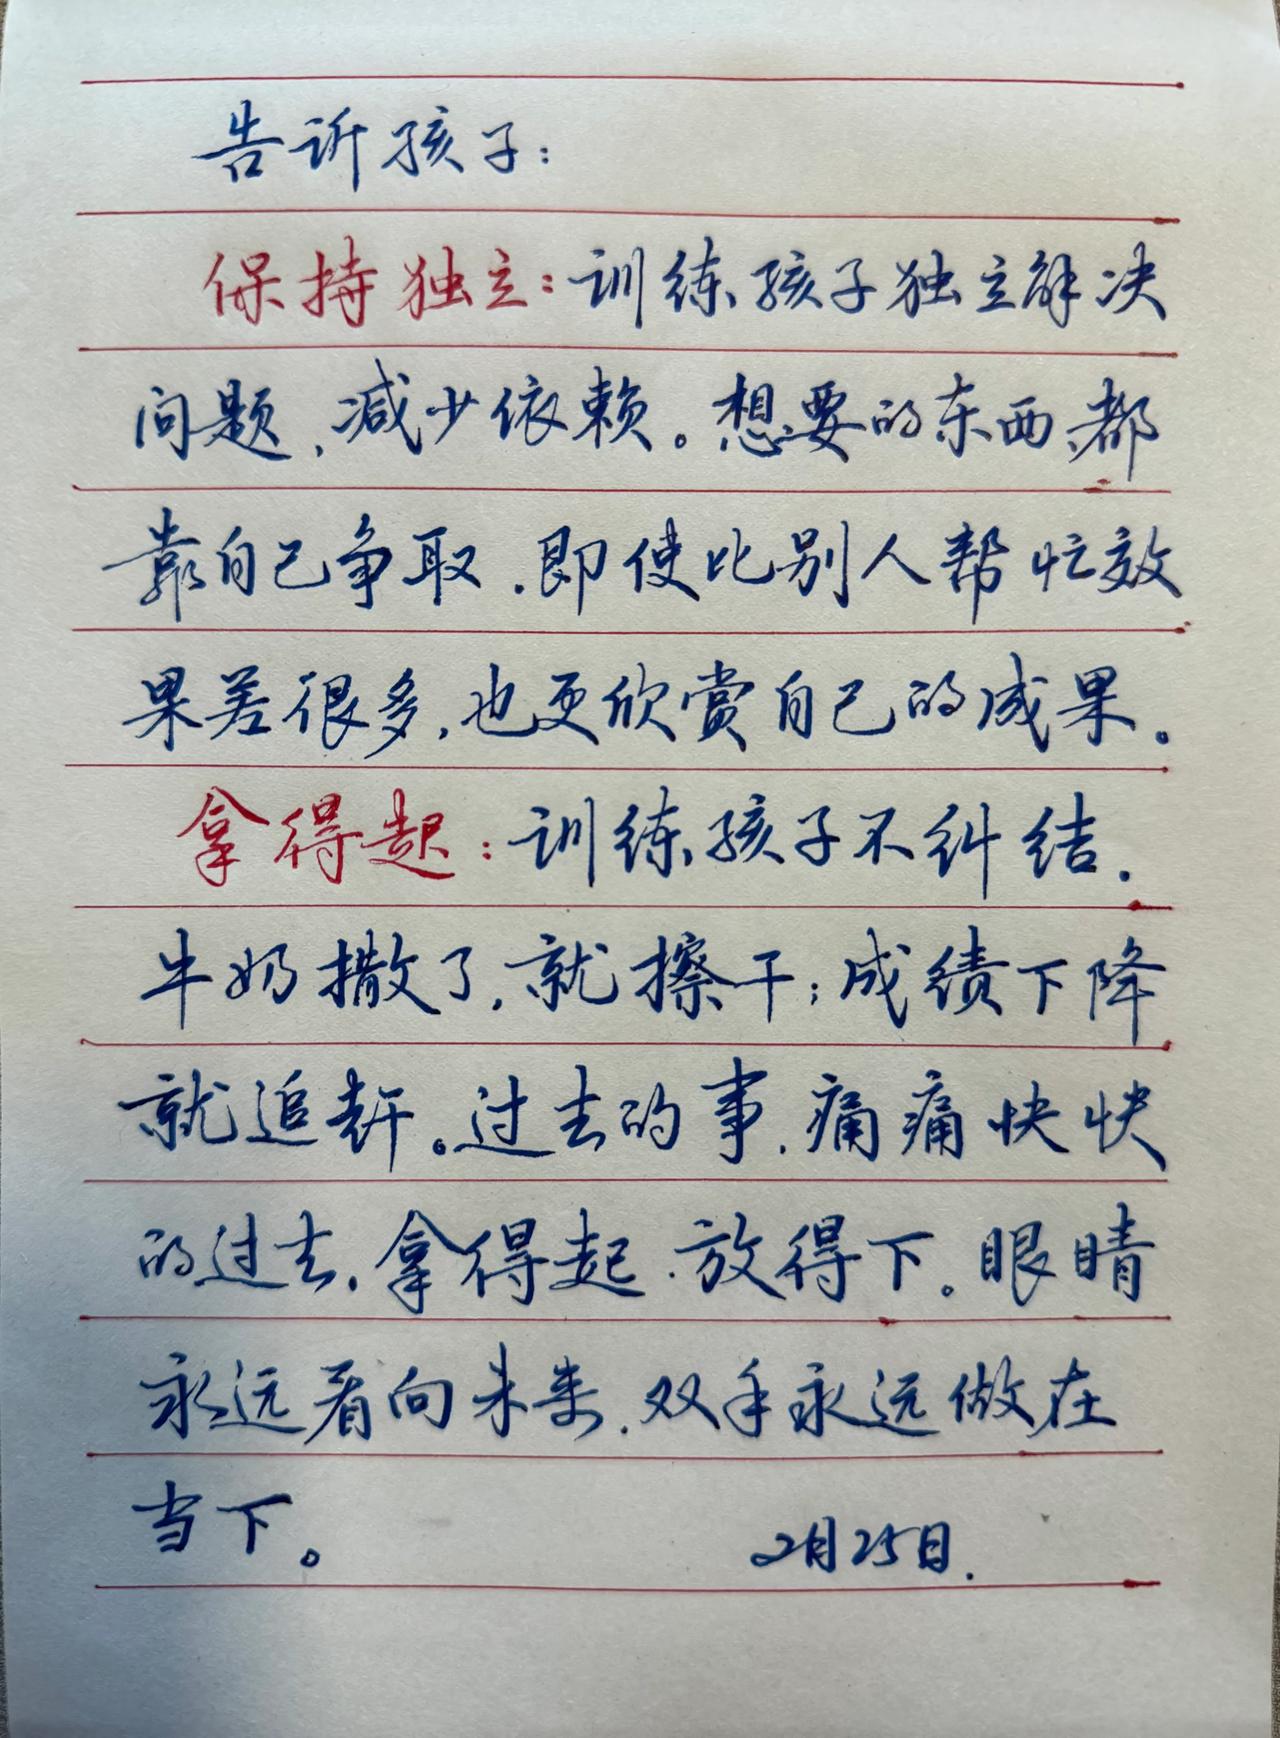 告诉孩子：
保持独立：训练孩子独立解决
问题，减少依赖。想要的东西，都
靠自己争取，即使比别人帮忙效
果差很多，也更欣赏自己的成果。
拿得起：训练孩子不纠结。
牛奶撒了，就擦干；成绩下降
就追赶。过去的事，痛痛快快
的过去，拿得起，放得下。眼睛
永远看向未来，双手永远做在
当下。
2月25日.